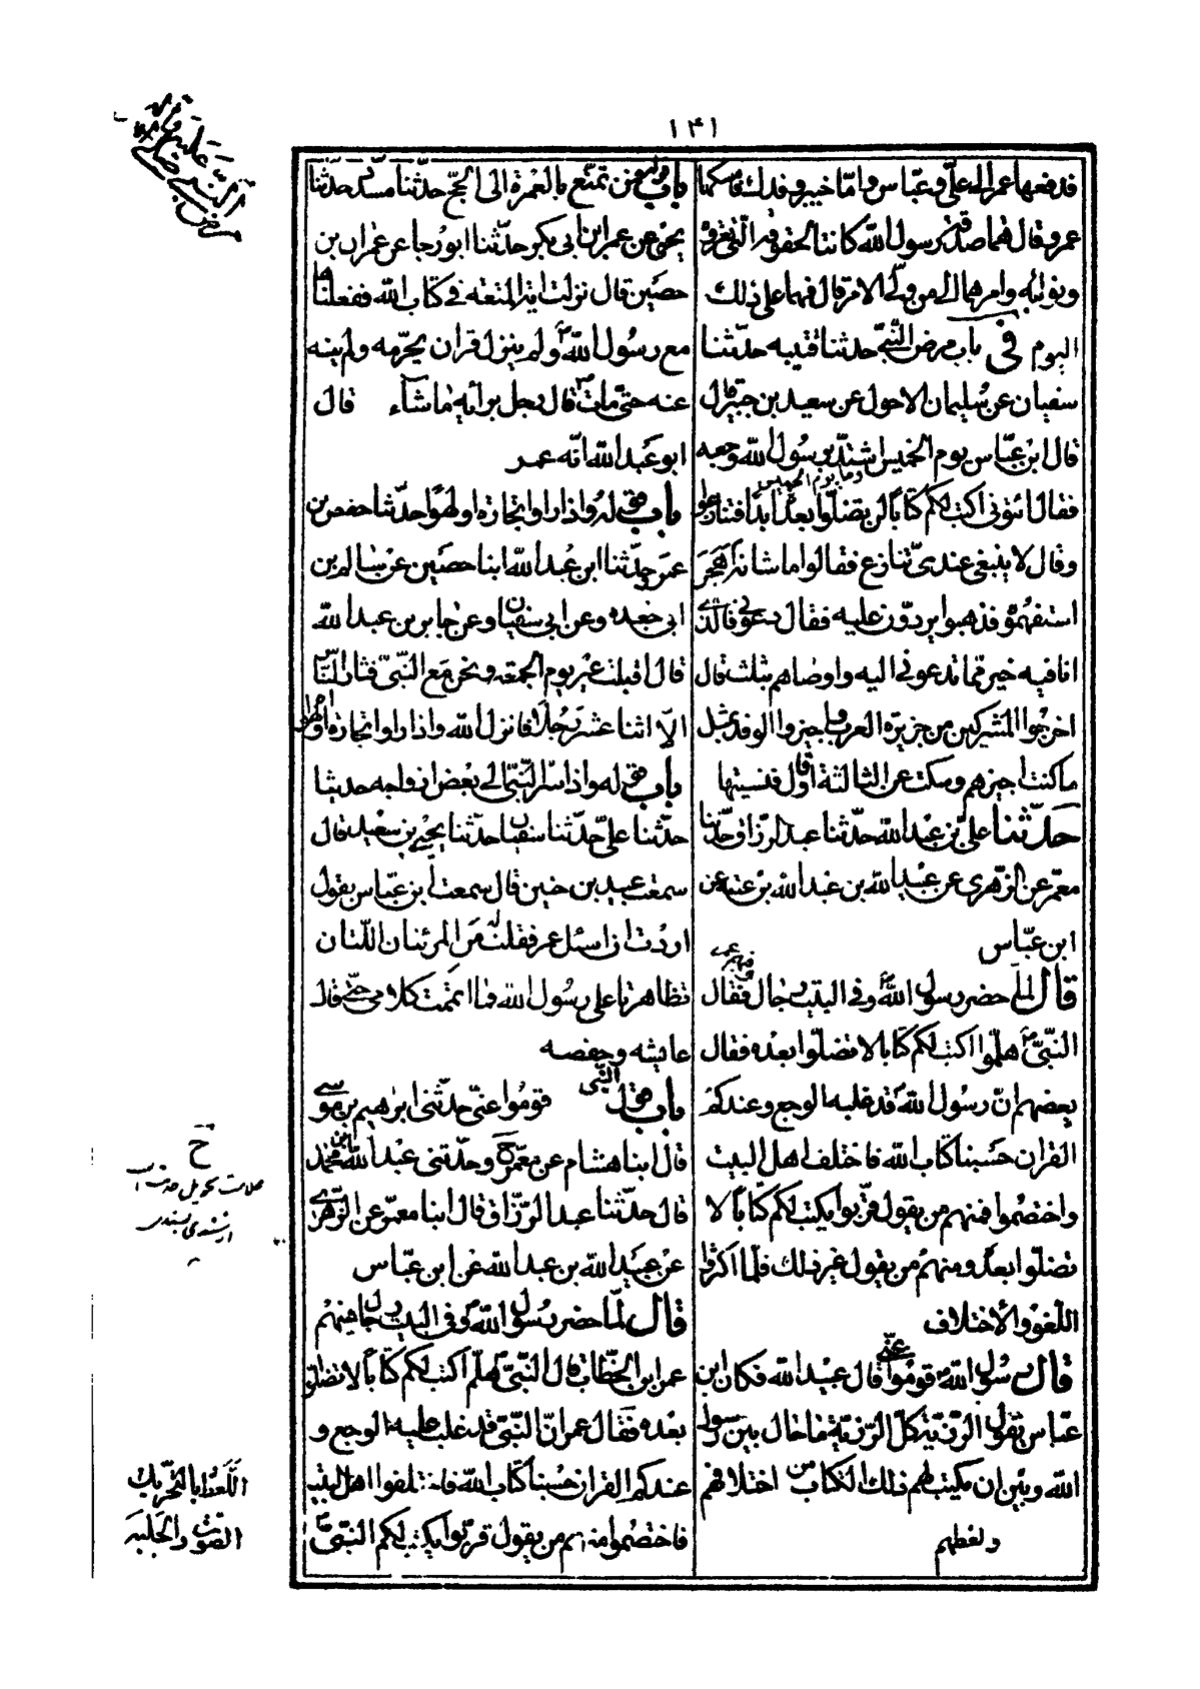 ١٤١
فدفعها عمر الى على و عباس و امّا خيبر و فدك فامسكها
عمر و قال هما صدقة رسول الله كانتا لحقوقه التى تعروه
و نوائبه و امرهما الى من ولّى الامر قال فهما على ذلك
اليوم فى باب مرض النّبىّ حدثنا قتيبه حدّثنا
سفيان عن سليمان الاحول عن سعيد بن جبير قال
قال ابن عبّاس يوم الخميس و ما يوم الخميس اشتدّ برسول الله وجعه
فقال ائتونى اكتب لكم كتاباً لن تضلّوا بعده ابدا فتنازعوا
و قال لا ينبغى عندى تنازع فقالوا ما شانه اهجر
استفهموه فذهبوا يردّون عليه فقال دعونى فالّذى
انا فيه خير ممّا تدعونى اليه و اوصاهم بثلث قال
اخرجوا المشركين من جزيرة العرب و اجيزوا الوفد بمثل
ما كنت اجيزهم و سكت عن الثالثة او قال فنسيتها
حدّثنا علىّ بن عبد الله حدّثنا عبد الرزاق حدّثنا
معمّر عن الزّهرى عن عبيد الله بن عبد الله بن عتبه عن
ابن عبّاس
قال لمّا حضر رسول الله و فى البيت رجال فيهم عمر فقال
النّبىّ هلمّوا اكتب لكم كتابا لا تضلّوا بعده فقال
بعضهم انّ رسول الله قد غلبه الوجع و عندكم
القران حسبنا كتاب الله فاختلف اهل البيت
و اختصموا فمنهم من يقول قرّبوا يكتب لكم كتاباً لا
تضلّوا بعده و منهم من يقول غير ذلك فلمّا اكثروا
اللغو و الاختلاف
قال رسول الله قوموا عنّى قال عبيد الله فكان ابن
عبّاس يقول انّ الرّزيّة كلّ الرّزيّة ما حال بين رسول
الله و بين ان يكتب لهم ذلك الكتاب من اختلافهم
و لغطهم
باب قوله فمن تمتّع بالعمرة الى الحجّ حدّثنا مسدّد حدّثنا
يحيى عن عمران ابى بكر حدّثنا ابو رجا عن عمران بن
حصين قال نزلت اية المتعه فى كتاب الله ففعلناها
مع رسول الله و لم ينزل قران يحرّمه و لم ينه
عنه حتى مات قال رجل برأيه ما شآء قال
ابو عبد الله انّه عمر
باب قوله و اذا راوا تجارة او لهوا حدّثنا حفص بن
عمر حدّثنا ابن عبد الله ابنا حصين عن سالم بن
ابى جعده و عن ابى سفيان و عن جابر بن عبد الله
قال اقبلت عير يوم الجمعه و نحن مع النّبىّ فثار النّاس
الّا اثنا عشر رجلا فانزل الله و اذا راوا تجارة او لهوا
باب قوله و اذا اسرّ النّبىّ الى بعض ازواجه حديثا
حدّثنا علىّ حدّثنا سفيان حدّثنا يحيى بن سعيد قال
سمعت عبيد بن حنين قال سمعت ابن عبّاس يقول
اردت ان اسئل عمر فقلت من المرئتان اللّتان
تظاهرتا على رسول الله فما اتممت كلامى حتّى قال
عايشه و حفصه
باب قول النّبى قوموا عنّى حدّثنى ابرهيم بن موسى
قال ابنا هشام عن معمر ح و حدّثنى عبد الله بن محمّد
قال حدّثنا عبد الرّزاق قال ابنا معمّر عن الزّهرى
عن عبيد الله بن عبد الله عن ابن عبّاس
قال لمّا حضر رسول الله و فى البيت رجال فيهم
عمر ابن الخطّاب قال النّبىّ هلمّ اكتب لكم كتاباً لا تضلّوا
بعده فقال عمر انّ النّبىّ قد غلب عليه الوجع و
عندكم القران حسبنا كتاب الله فاختلفوا اهل البيت
فاختصموا منهم من يقول قرّبوا يكتب لكم النّبىّ
ح
علامت تحويل حديث
از سندى بسندى
اللّغط بالتّحريك
الصّوت و الجلبة